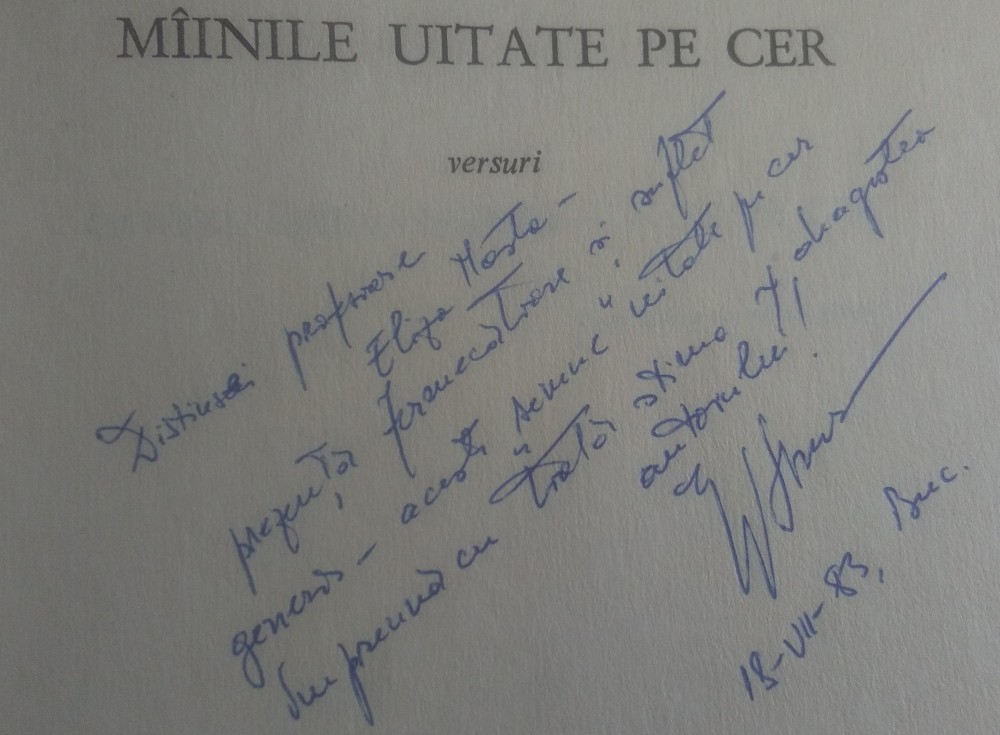 MÎINILE UITATE PE CER
versuri
Distinsei profesoare
Eliza Hasta -
prezență fermecătoare și suflet
generos - aceste "semne" "uitate pe cer
Împreună cu toată stima și dragostea
autorului!
18-VII-83, Buc.